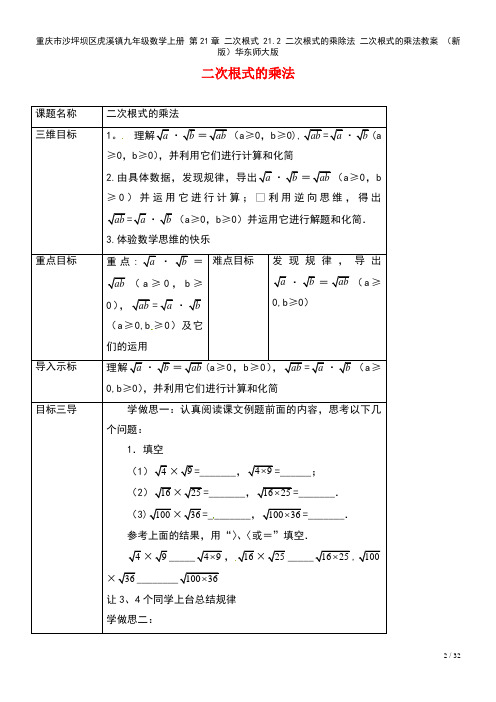 重庆市沙坪坝区虎溪镇九年级数学上册 第21章 二次根式 21.2 二次根式的乘除法 二次根式的乘法教案 （新
版）华东师大版
二次根式的乘法
课题名称 二次根式的乘法
三维目标 1。. 理解√a·√b=√ab（a≥0，b≥0),√ab=√a·√b(a
≥0，b≥0），并利用它们进行计算和化简
2.由具体数据，发现规律，导出√a·√b=√ab（a≥0，b
≥0）并运用它进行计算；□利用逆向思维，得出
√ab=√a·√b（a≥0，b≥0）并运用它进行解题和化简．
3.体验数学思维的快乐
重点目标 重点:√a·√b=
√ab（a≥0，b≥
0)，√ab=√a·√b
（a≥0,b≥0）及它
们的运用
难点目标 发现规律，导出
√a·√b=√ab（a≥
0,b≥0）
导入示标 理解√a·√b=√ab(a≥0，b≥0），√ab=√a·√b（a≥
0,b≥0），并利用它们进行计算和化简
目标三导 学做思一：认真阅读课文例题前面的内容，思考以下几
个问题：
1．填空
（1）√4×√9=_______，√4×9=______；
（2）√16×√25=_______，√16×25=_______．
（3)√100×√36=_______，√100×36=_______．
参考上面的结果，用“〉、〈或=”填空．
√4×√9_____√4×9，√16×√25_____√16×25，√100
×√36________√100×36
让3、4个同学上台总结规律
学做思二：
2 / 32